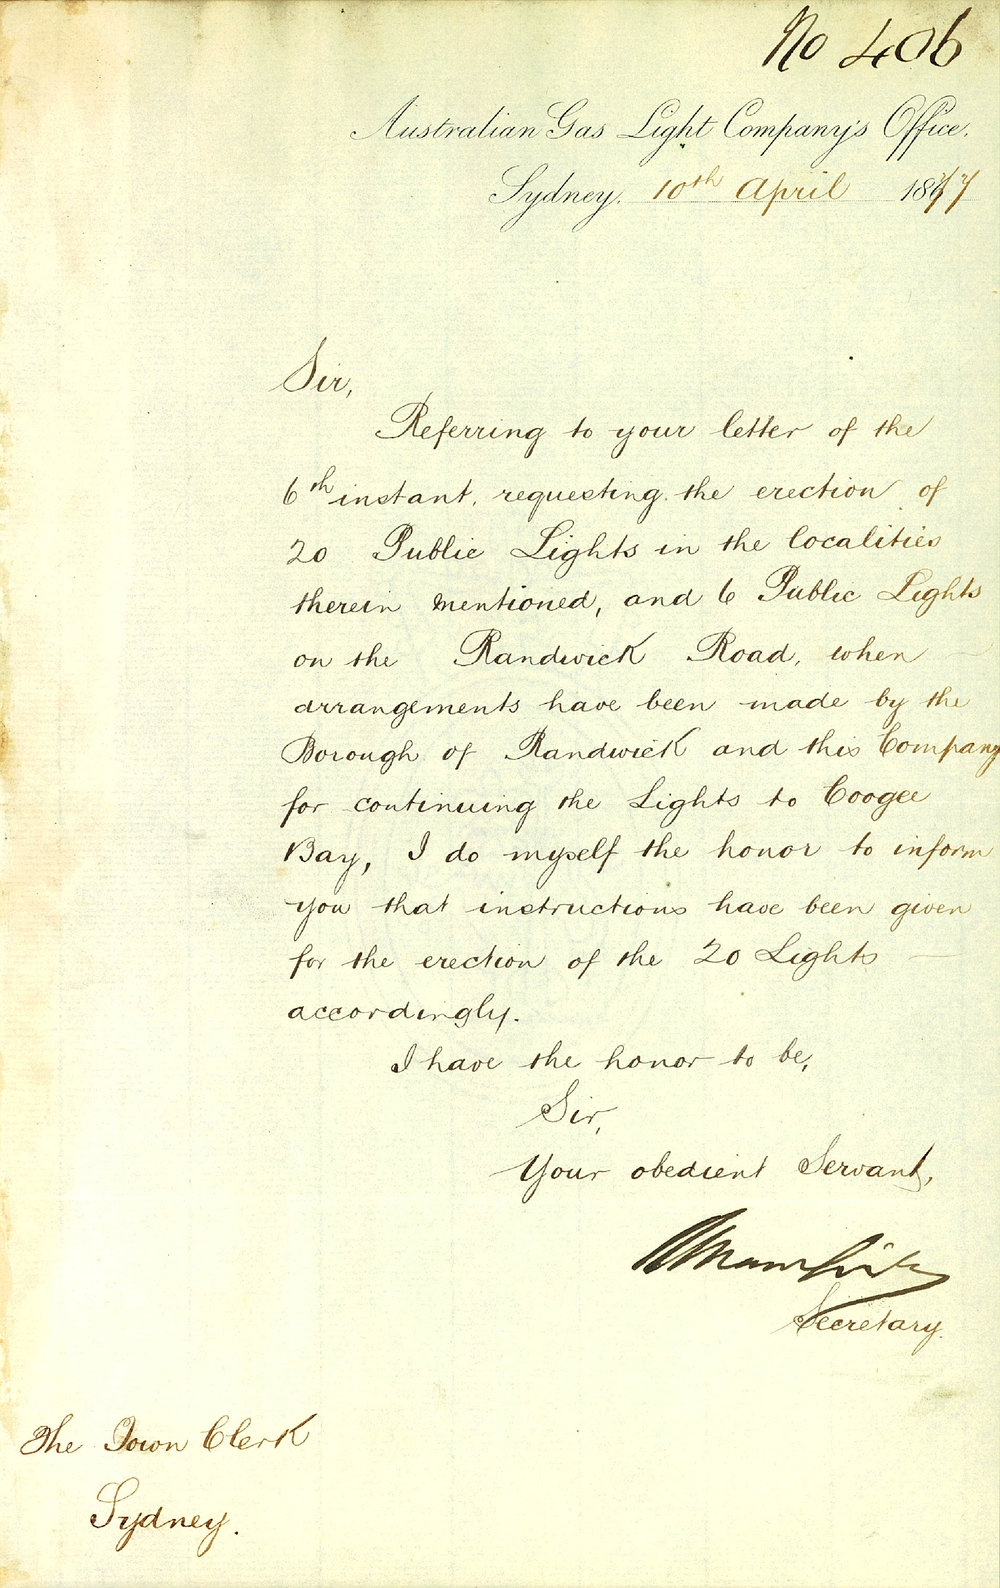 No 406
Australian Gas Light Company's Office.
Sydney. 10th April 1877
Sir,
Referring to your letter of the
6th instant, requesting the erection of
20 Public Lights in the localities
therein mentioned, and 6 Public Lights
on the Randwick Road, when
arrangements have been made by the
Borough of Randwick and this Company
for continuing the Lights to Coogee
Bay, I do myself the honor to inform
you that instructions have been given
for the erection of the 20 Lights
accordingly.
I have the honor to be,
Sir,
Your obedient Servant,
Secretary.
The Town Clerk
Sydney.